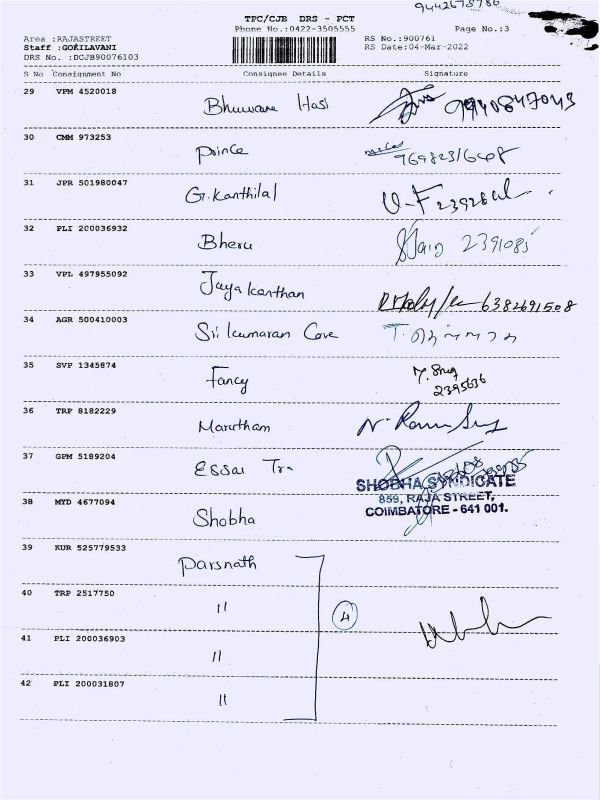 TPC/CJB DRS - PCT
Phone No.:0422-3505555 Page No.:3
Area :RAJASTREET RS No.:900761
Staff :GOKILAVANI RS Date:04-Mar-2022
DRS No. :DCJB90076103
S No Consignment No Consignee Details Signature
29 VPM 4520018 Bhuwana Hasl 9940847043
30 CMM 973253 Prince
31 JPR 501980047 G.Kanthilal
32 PLI 200036932 Bheru Jain 2391085
33 VPL 497955092 Jayakanthan 6382691508
34 AGR 500410003 Sri kumaran Cove
35 SVP 1345874 Fancy
2395636
36 TRP 8182229 Marutham
37 GPM 5189204 Essar Tra
SHOBHA SYNDICATE
859, RAJA STREET,
COIMBATORE - 641 001.
38 MYD 4677094 Shobha
39 KUR 525779533 Parsnath
40 TRP 2517750 " 4
41 PLI 200036903 "
42 PLI 200031807 "